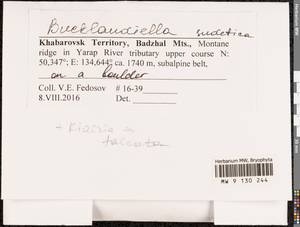 Bucklandiella sudetica
Khabarovsk Territory, Badzhal Mts., Montane
ridge in Yarap River tributary upper course N:
50,347°; E: 134,644° ca. 1740 m, subalpine belt,
on a boulder
Coll. V.E. Fedosov # 16-39
8.VIII.2016 Det.
+ Kiaeria
falcata
Herbarium MW, Bryophyta
MW 9 130 244